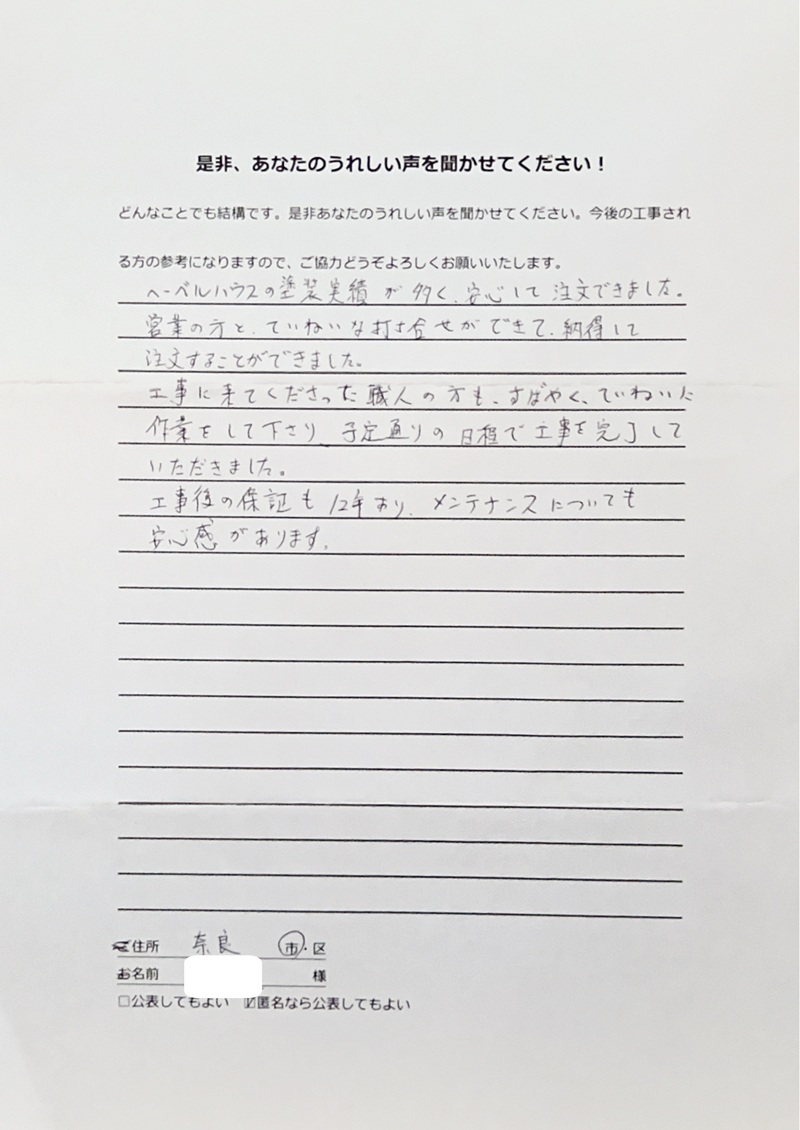 是非、あなたのうれしい声を聞かせてください！
どんなことでも結構です。是非あなたのうれしい声を聞かせてください。今後の工事され
る方の参考になりますので、ご協力どうぞよろしくお願いいたします。
ヘーベルハウスの塗装実績が多く、安心して注文できました。
営業の方と、ていねいな打合せができて、納得して
注文することができました。
工事に来てくださった職人の方も、すばやく、ていねいに
作業をして下さり、予定通りの日程で工事を完了して
いただきました。
工事後の保証も12年あり、メンテナンスについても
安心感があります。
ご住所 奈良 市・区
お名前 様
□公表してもよい ☑匿名なら公表してもよい